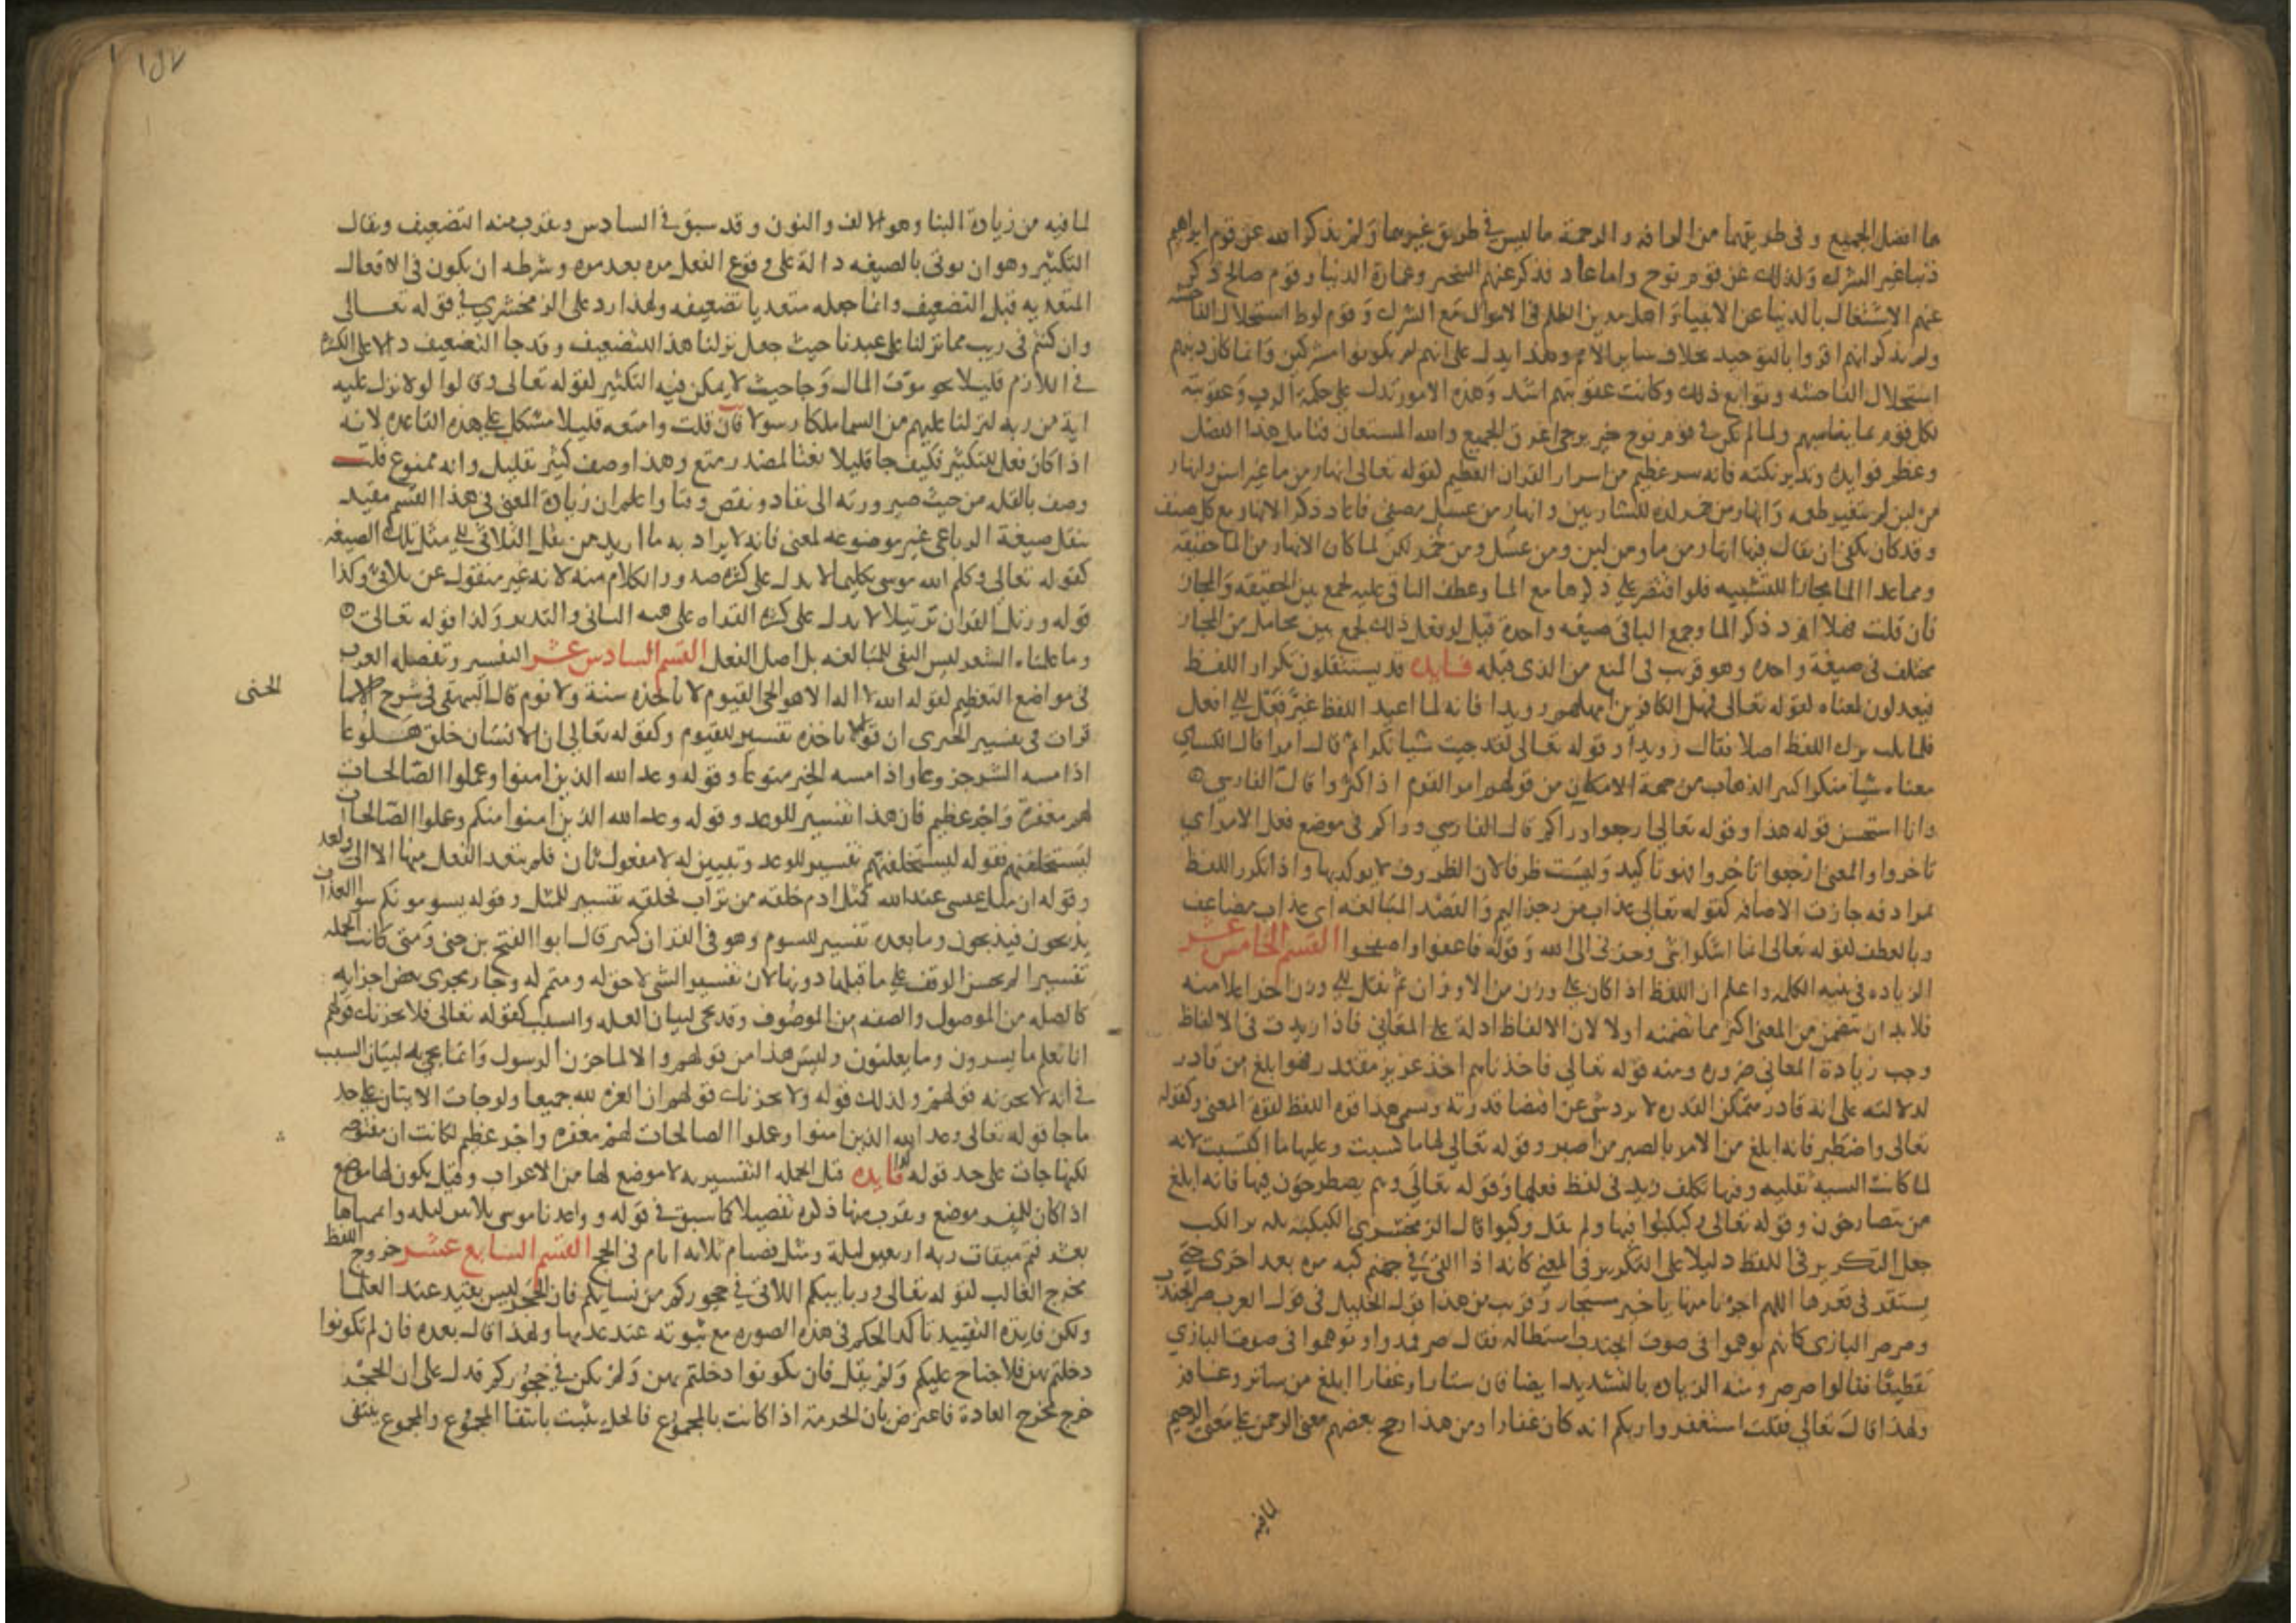 هما افضل الجميع وفى طريقتهما من الرافه والرحمة ما ليس فى طريق غيرهما ولم يذكر الله عن قوم ابراهيم
ذنبا غير الشرك ولذلك عن قوم نوح واما عاد فذكر عنهم التجبر وعمارة الدنيا وقوم صالح ذكر
عنهم الاشتغال بالدنيا عن الانبياء واهل مدين الظلم فى الاموال مع الشرك وقوم لوط استحلال الفاحشه
ولم يذكر انهم اقروا بالتوحيد بخلاف سائر الامم وهذا يدل على انهم لم يكونوا مشركين وانما كان دينهم
استحلال الفاحشه وتوابع ذلك وكانت عقوبتهم اشد وهذه الامور تدل على حكمة الرب وعقوبته
لكل قوم بما يناسبهم ولما لم يكن فى قوم نوح خير يرجى اغرق الجميع والله المستعان فتامل هذا الفصل
وعظم فوايده وتدبر نكته فانه سر عظيم من اسرار القران العظيم لقوله تعالى انهار من ماء غير اسن وانهار
من لبن لم يتغير طعمه وانهار من خمر لذه للشاربين وانهار من عسل مصفى فاعاد ذكر الانهار مع كل صنف
وقد كان يكفى ان يقال فيها انهار من ما ومن لبن ومن عسل ومن خمر لكن لما كان الانهار من الما حقيقه
وما عدا الما مجازا للتشبيه فلو اقتصر على ذكرها مع الما وعطف الباقى عليه لجمع بين الحقيقه والمجاز
فان قلت فهلا افرد ذكر الما وجمع الباقى صيغه واحدة قيل لو فعل ذلك لجمع بين محامل من المجاز
مختلف فى صيغة واحده وهو قريب فى المنع من الذى قبله فايده قد يستثقلون تكرار اللفظ
فيعدلون لمعناه لقوله تعالى فمهل الكافرين امهلهم رويدا فانه لما اعيد اللفظ غير فعل الى افعل
فلما ثلث ترك اللفظ اصلا فقال رويدا وقوله تعالى لقد جيت شيا نكرا ثم قال امرا قال الكساي
معناه شيا منكرا كبير الذهاب من جهة الامكان من قولهم امر القوم اذا كثروا قال الفارسي
وانا استحسن قوله هذا وقوله تعالى ارجعوا وراكم قال الفارسي وراكم فى موضع فعل الامر اي
تاخروا والمعنى ارجعوا تاخروا فهو تاكيد وليست ظرفا لان الظروف لا يوكد بها واذا تكرر اللفظ
بمرادفه جازت الاضافه كقوله تعالى عذاب من رجز اليم والقصد المبالغه اى عذاب مضاعف
وبالعطف لقوله تعالى انما اشكوا بثى وحزنى الى الله وقوله فاعفوا واصفحوا القسم الخامس عشر
الزياده فى بنيه الكلمه واعلم ان اللفظ اذا كان على وزن من الاوزان ثم نقل الى وزن اخر اعلا منه
فلا بد ان يتضمن من المعنى اكثر مما تضمنه اولا لان الالفاظ ادلة على المعاني فاذا زيدت فى الالفاظ
وجب زيادة المعاني ضروره ومنه قوله تعالى فاخذناهم اخذ عزيز مقتدر فهو ابلغ من قادر
لدلالته على انه قادر متمكن القدره لا يرد شى عن اقتضا قدرته ويسمى هذا قوة اللفظ لقوة المعنى وكقوله
تعالى واصطبر فانه ابلغ من الامر بالصبر من اصبر وقوله تعالى لها ما كسبت وعليها ما اكتسبت لانه
لما كانت السيه ثقليه وفيها تكلف زيد فى لفظ فعلها وقوله تعالى وهم يصطرخون فيها فانه ابلغ
من يتصارخون وقوله تعالى فكبكبوا فيها ولم يقل وكبوا قال الزمخشرى الكبكبه تكرير الكب
جعل التكرير فى اللفظ دليلا على التكرير فى المعنى كانه اذا القى فى جهنم كبه مره بعد اخرى حتى
يستقر فى قعرها اللهم اجرنا منها يا خير مستجار وقريب من هذا قول الخليل فى قول العرب صر الجندب
وصرصر البازى كانهم توهموا فى صوت الجندب استطالة فقال صر فمدوا وتوهموا فى صوت البازي
تقطيعا فقالوا صرصر ومنه الزياده بالتشديد ايضا فان ستارا وغفارا ابلغ من ساتر وغافر
ولهذا قال تعالى فقلت استغفروا ربكم انه كان غفارا ومن هذا رجح بعضهم معنى الرحمن على معنى الرحيم
لما فيه
١٥٧
لما فيه من زيادة البنا وهو الالف والنون وقد سبق فى السادس ويقرب منه التضعيف ويقال
التكثير وهو ان يوتى بالصيغه دالة على وقوع الفعل مره بعد مره وشرطه ان يكون فى الافعال
المتعديه قبل التضعيف وانما جعله متعديا تضعيفه ولهذا رد على الزمخشري فى قوله تعالى
وان كنتم فى ريب مما نزلنا على عبدنا حيث جعل نزلنا هذا للتضعيف وقد جا التضعيف دالا على الكثره
فى اللازم قليلا نحو موت المال وجا حيث لا يمكن فيه التكثير لقوله تعالى وقالوا لولا نزل عليه
اية من ربه لنزلنا عليهم من السما ملكا رسولا فان قلت وامتعه قليلا مشكل على هذه القاعده لانه
اذا كان فعل للتكثير فكيف جا قليلا نعتا لمصدر متع وهذا وصف كثير بقليل وانه ممنوع قلت
وصف بالقله من حيث صيرورته الى نفاد ونقص وفنا واعلم ان زيادة المعنى فى هذا القسم مقيد
بنقل صيغة الرباعى غير موضوعه لمعنى فانه لا يراد به ما اريد من نقل الثلاثى الى مثل تلك الصيغه
كقوله تعالى وكلم الله موسى تكليما لا يدل على كثره صدور الكلام منه لانه غير منقول عن ثلاثى وكذا
قوله ورتل القران ترتيلا لا يدل على كثره القراه على هيه التانى والتدبر ولذا قوله تعالى
وما علمناه الشعر ليس النفى للمبالغه بل اصل الفعل القسم السادس عشر التفسير وتفعله العرب
فى مواضع التعظيم لقوله الله لا اله الا هو الحى القيوم لا تاخذه سنة ولا نوم قال البيهقى فى شرح الاسما
الحسنى
قرات فى تفسير الجنيدى ان قوله لا تاخذه تفسير للقيوم وكقوله تعالى ان الانسان خلق هلوعا
اذا مسه الشر جزوعا واذا مسه الخير منوعا وقوله وعد الله الذين امنوا وعملوا الصالحات
لهم مغفرة واجر عظيم فان هذا تفسير للوعد وقوله وعد الله الذين امنوا منكم وعملوا الصالحات
ليستخلفنهم فقوله ليستخلفنهم تفسير للوعد وتبيين له لا مفعول ثان فلم يتعد الفعل منها الا الى واحد
وقوله ان مثل عيسى عند الله كمثل ادم خلقه من تراب فخلقه تفسير للمثل وقوله يسومونكم سوا العذاب
يذبحون فيذبحون وما بعده تفسير للسوم وهو فى القران كثير قال ابوا الفتح بن جنى ومتى كانت الجمله
تفسيرا لم يحسن الوقف على ما قبلها دونها لان تفسير الشى لاحق له ومتمم له وجار مجرى بعض اجزايه
كالصله من الموصول والصفه من الموصوف وقد تجى لبيان العله والسبب كقوله تعالى فلا يحزنك قولهم
انا نعلم ما يسرون وما يعلنون وليس هذا من قولهم والا لما حزن الرسول وانما جى به لبيان السبب
فى انه لا يحزنه قولهم ولذلك قوله ولا يحزنك قولهم ان العزه لله جميعا ولو جات الايتان على حد
ما جا قوله تعالى وعد الله الذين امنوا وعملوا الصالحات لهم مغفره واجر عظيم لكانت ان مفتوحه
لكنها جات على حد قوله فايده قيل الجمله التفسيريه لا موضع لها من الاعراب وقيل يكون لها موضع
اذا كان للمفسر موضع ويقرب منها ذكره تفصيلا كما سبق فى قوله وواعدنا موسى ثلاثين ليله واتممناها
بعشر فتم ميقات ربه اربعين ليلة ومثل فصيام ثلاثه ايام فى الحج القسم السابع عشر خروج اللفظ
مخرج الغالب لقوله تعالى وربايبكم اللاتى فى حجوركم من نسايكم فان الحجر ليس بقيد عند العلما
ولكن فايدة التقييد تاكد الحكم فى هذه الصوره مع ثبوته عند عدمها ولهذا قال بعده فان لم تكونوا
دخلتم بهن فلا جناح عليكم ولم يقل فان لم تكونوا دخلتم بهن ولم يكن فى حجوركم فدل على ان الحجر
خرج مخرج العادة فاعترض بان الحرمة اذا كانت بالمجموع فالحل يثبت بانتفا المجموع والمجموع ينتفى